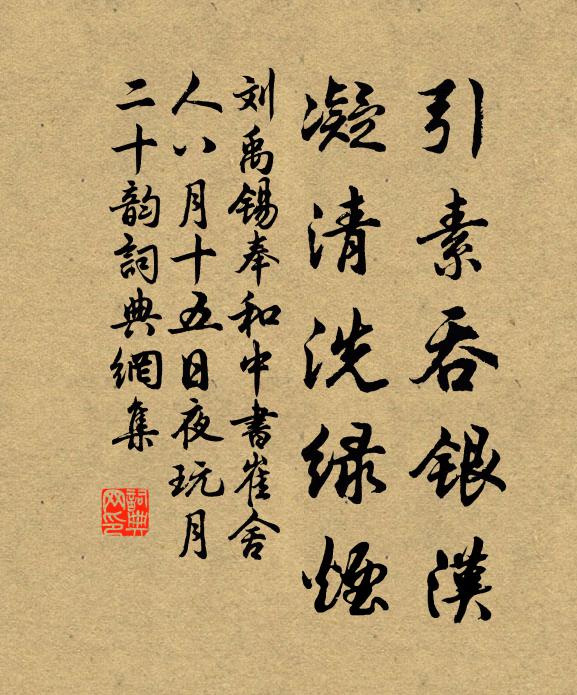 引素吞银汉
凝清洗绿烟
刘禹锡奉和中書崔舍
人八月十五日夜玩月
二十韵詞典網集
詞典
网印